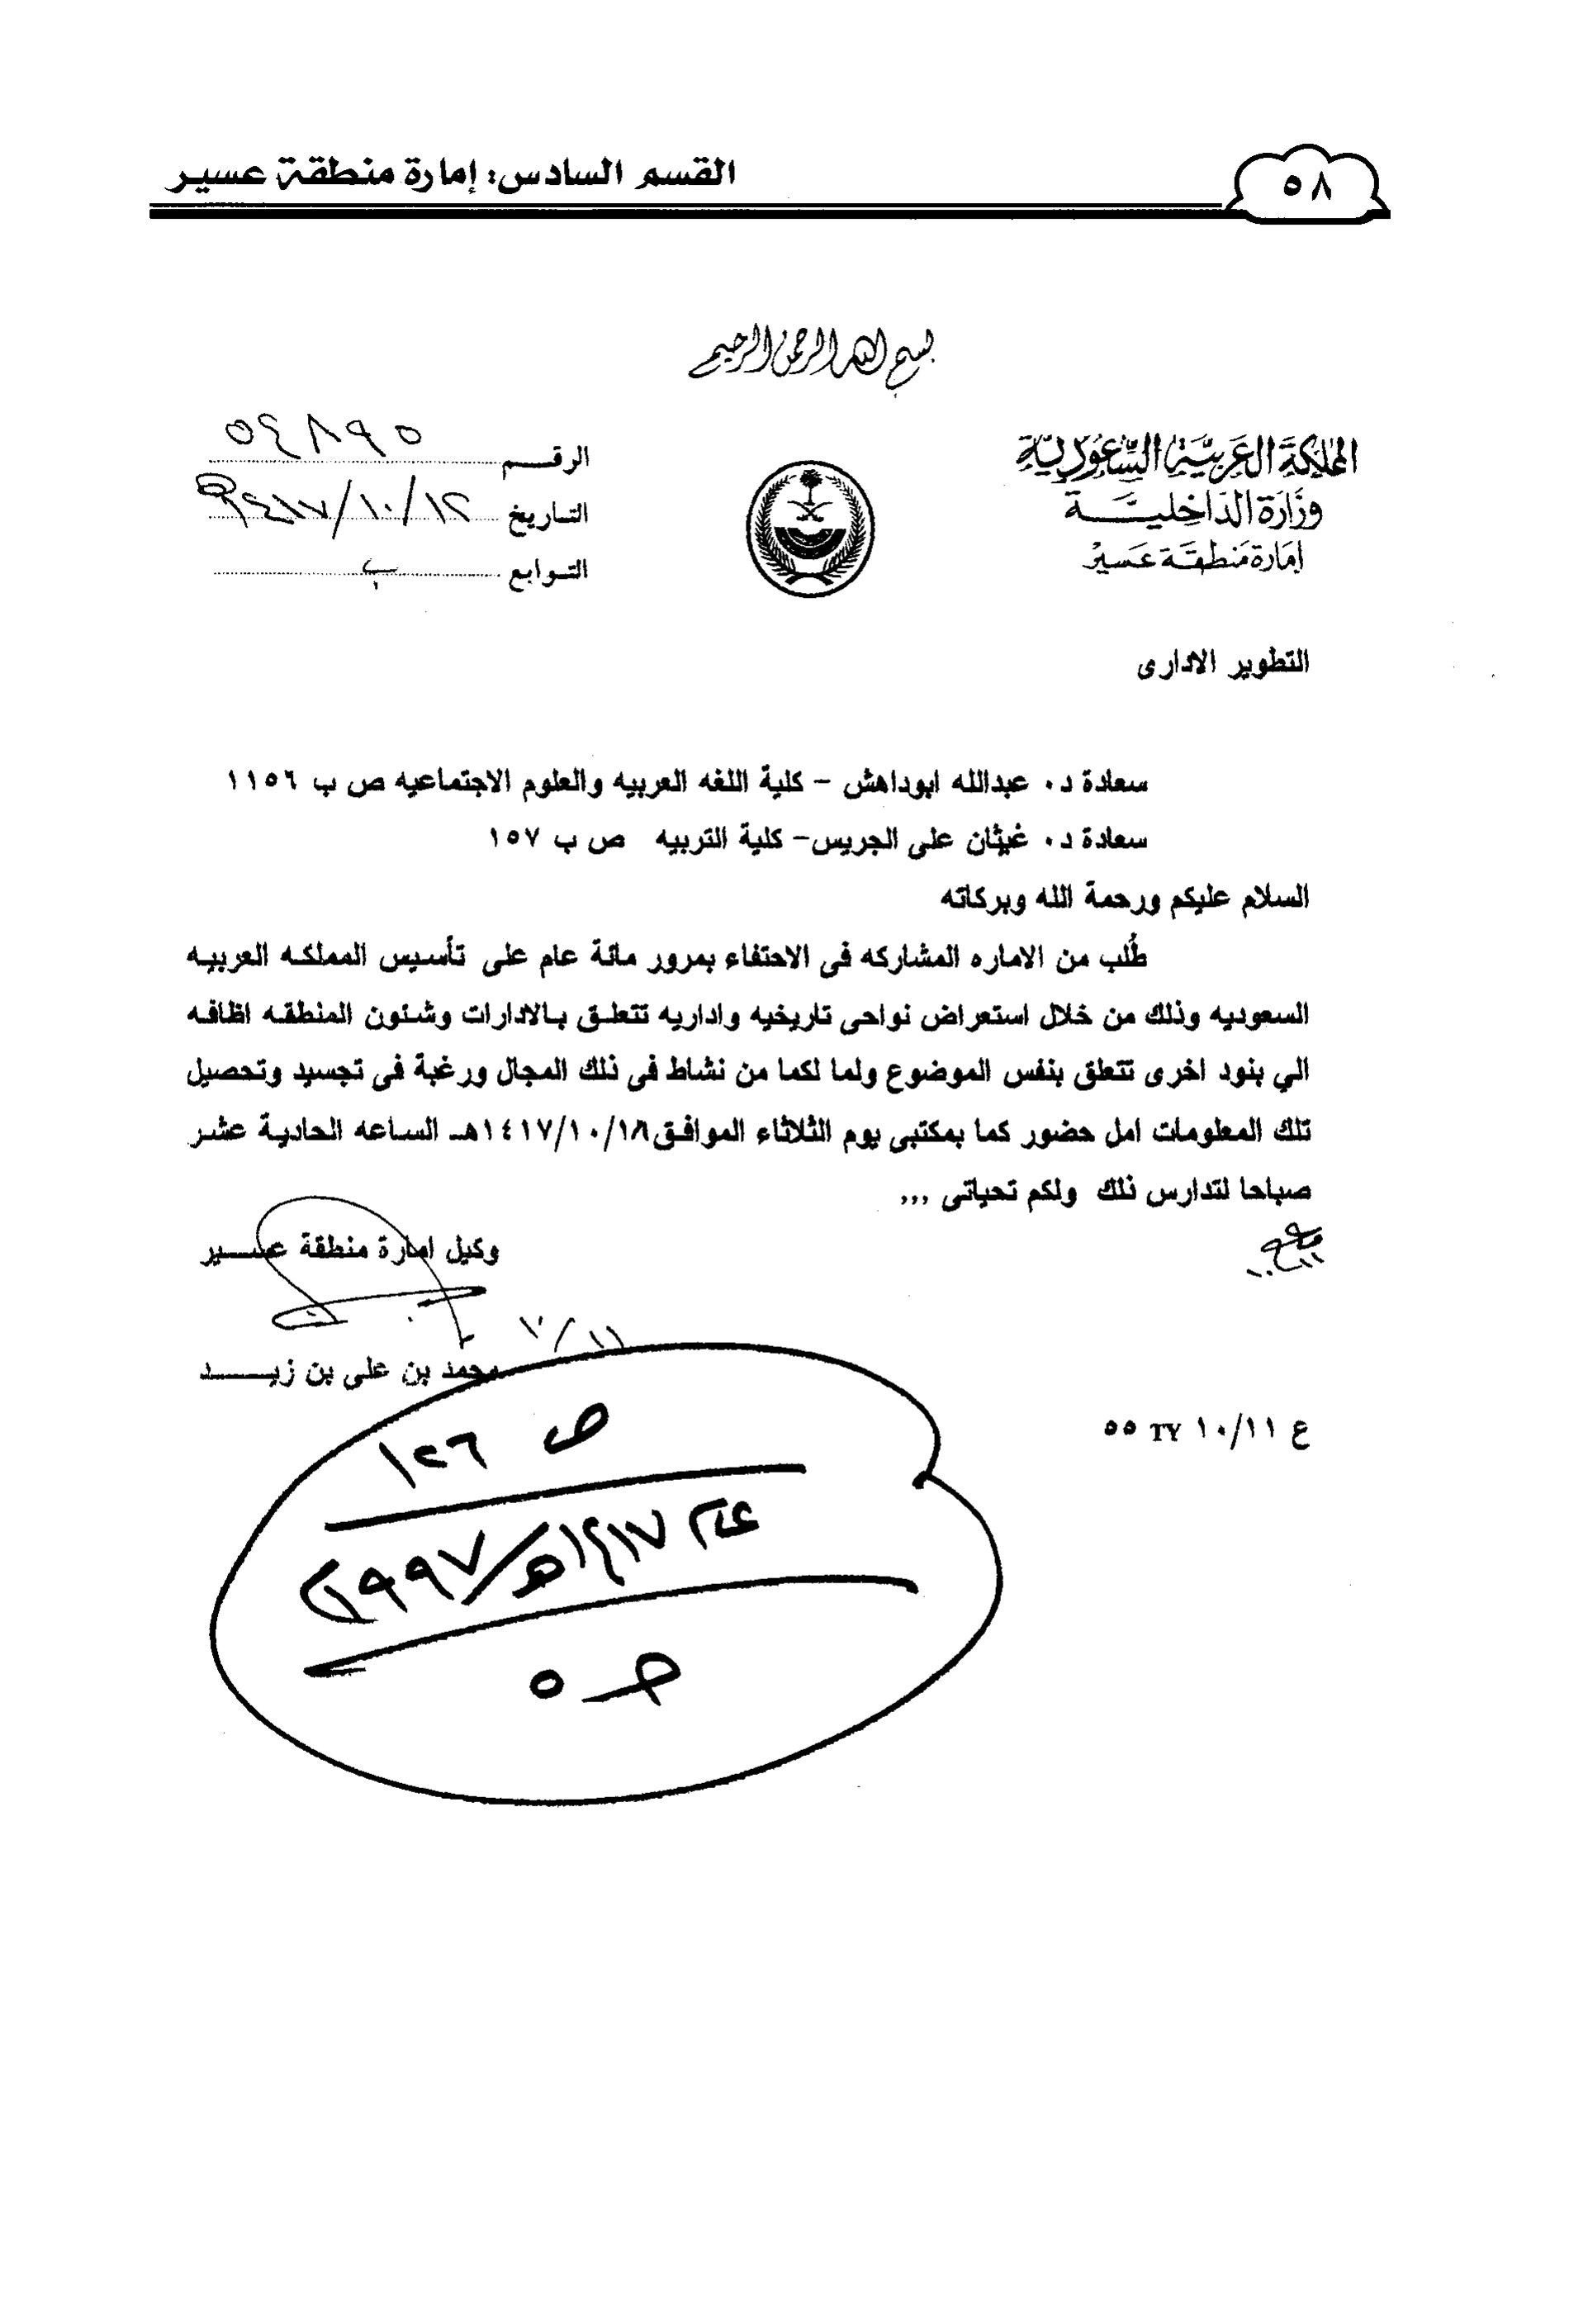 القسم السادس: إمارة منطقة عسير
٥٨
بسم الله الرحمن الرحيم
المملكة العربية السعودية
وزارة الداخلية
إمارة منطقة عسير
الرقم ٥٤٨٩٥
التاريخ ١٤١٧/١٠/١٢هـ
التوابع
التطوير الادارى
سعادة د٠ عبدالله ابوداهش - كلية اللغه العربيه والعلوم الاجتماعيه ص ب ١١٥٦
سعادة د٠ غيثان على الجريس- كلية التربيه ص ب ١٥٧
السلام عليكم ورحمة الله وبركاته
طُلب من الاماره المشاركه فى الاحتفاء بمرور مائة عام على تأسيس المملكه العربيه
السعوديه وذلك من خلال استعراض نواحى تاريخيه واداريه تتعلق بالادارات وشئون المنطقه اظافه
الي بنود اخرى تتعلق بنفس الموضوع ولما لكما من نشاط فى ذلك المجال ورغبة فى تجسيد وتحصيل
تلك المعلومات امل حضور كما بمكتبى يوم الثلاثاء الموافق١٤١٧/١٠/١٨هـ الساعه الحادية عشر
صباحا لتدارس ذلك ولكم تحياتى ,,,
وكيل امارة منطقة عسير
١٠/١١
محمد بن على بن زيد
ع ١٠/١١ TY ٥٥
ص ١٢٦
عام ١٤١٧هـ/١٩٩٧م
حـ ٥